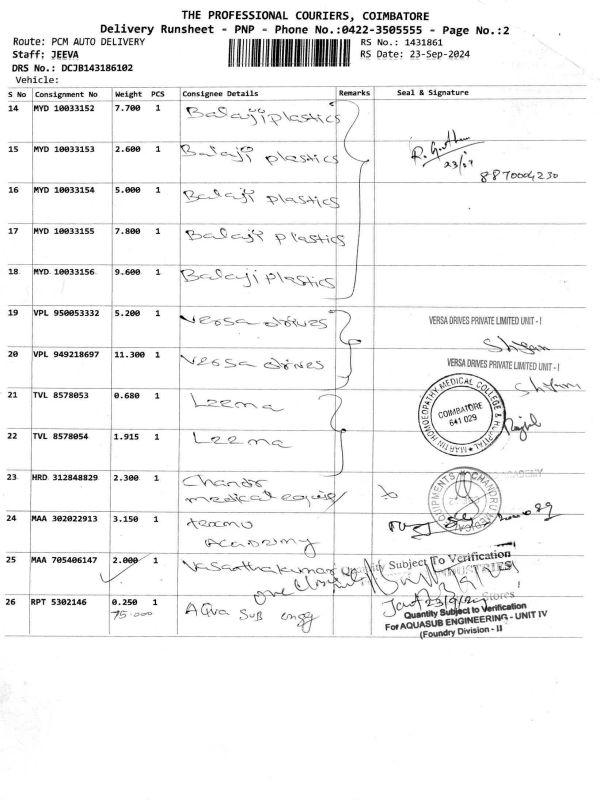 THE PROFESSIONAL COURIERS, COIMBATORE
Delivery Runsheet - PNP - Phone No.:0422-3505555 - Page No.:2
Route: PCM AUTO DELIVERY RS No.: 1431861
Staff: JEEVA RS Date: 23-Sep-2024
DRS No.: DCJB143186102
Vehicle:
S No Consignment No Weight PCS Consignee Details Remarks Seal & Signature
14 MYD 10033152 7.700 1 Balaji plastics
15 MYD 10033153 2.600 1 Balaji plastics
23/9
8870004230
16 MYD 10033154 5.000 1 Balaji plastics
17 MYD 10033155 7.800 1 Balaji plastics
18 MYD 10033156 9.600 1 Balaji plastics
19 VPL 950053332 5.200 1 Versa drives VERSA DRIVES PRIVATE LIMITED UNIT - I
Shyam
20 VPL 949218697 11.300 1 Versa drives VERSA DRIVES PRIVATE LIMITED UNIT - I
Shyam
21 TVL 8578053 0.680 1 Leema
MARTIN HOMOEOPATHY MEDICAL COLLEGE & HOSPITAL
COIMBATORE
641 029
22 TVL 8578054 1.915 1 Leema
23 HRD 312848829 2.300 1 Chandr
medical equip
24 MAA 302022913 3.150 1
Academy
25 MAA 705406147 2.000 1 Vasanthakumar Quantity Subject To Verification
26 RPT 5302146 0.250 1 Aqva Sub engg
75.000
Stores
Quantity Subject to Verification
For AQUASUB ENGINEERING - UNIT IV
(Foundry Division - II